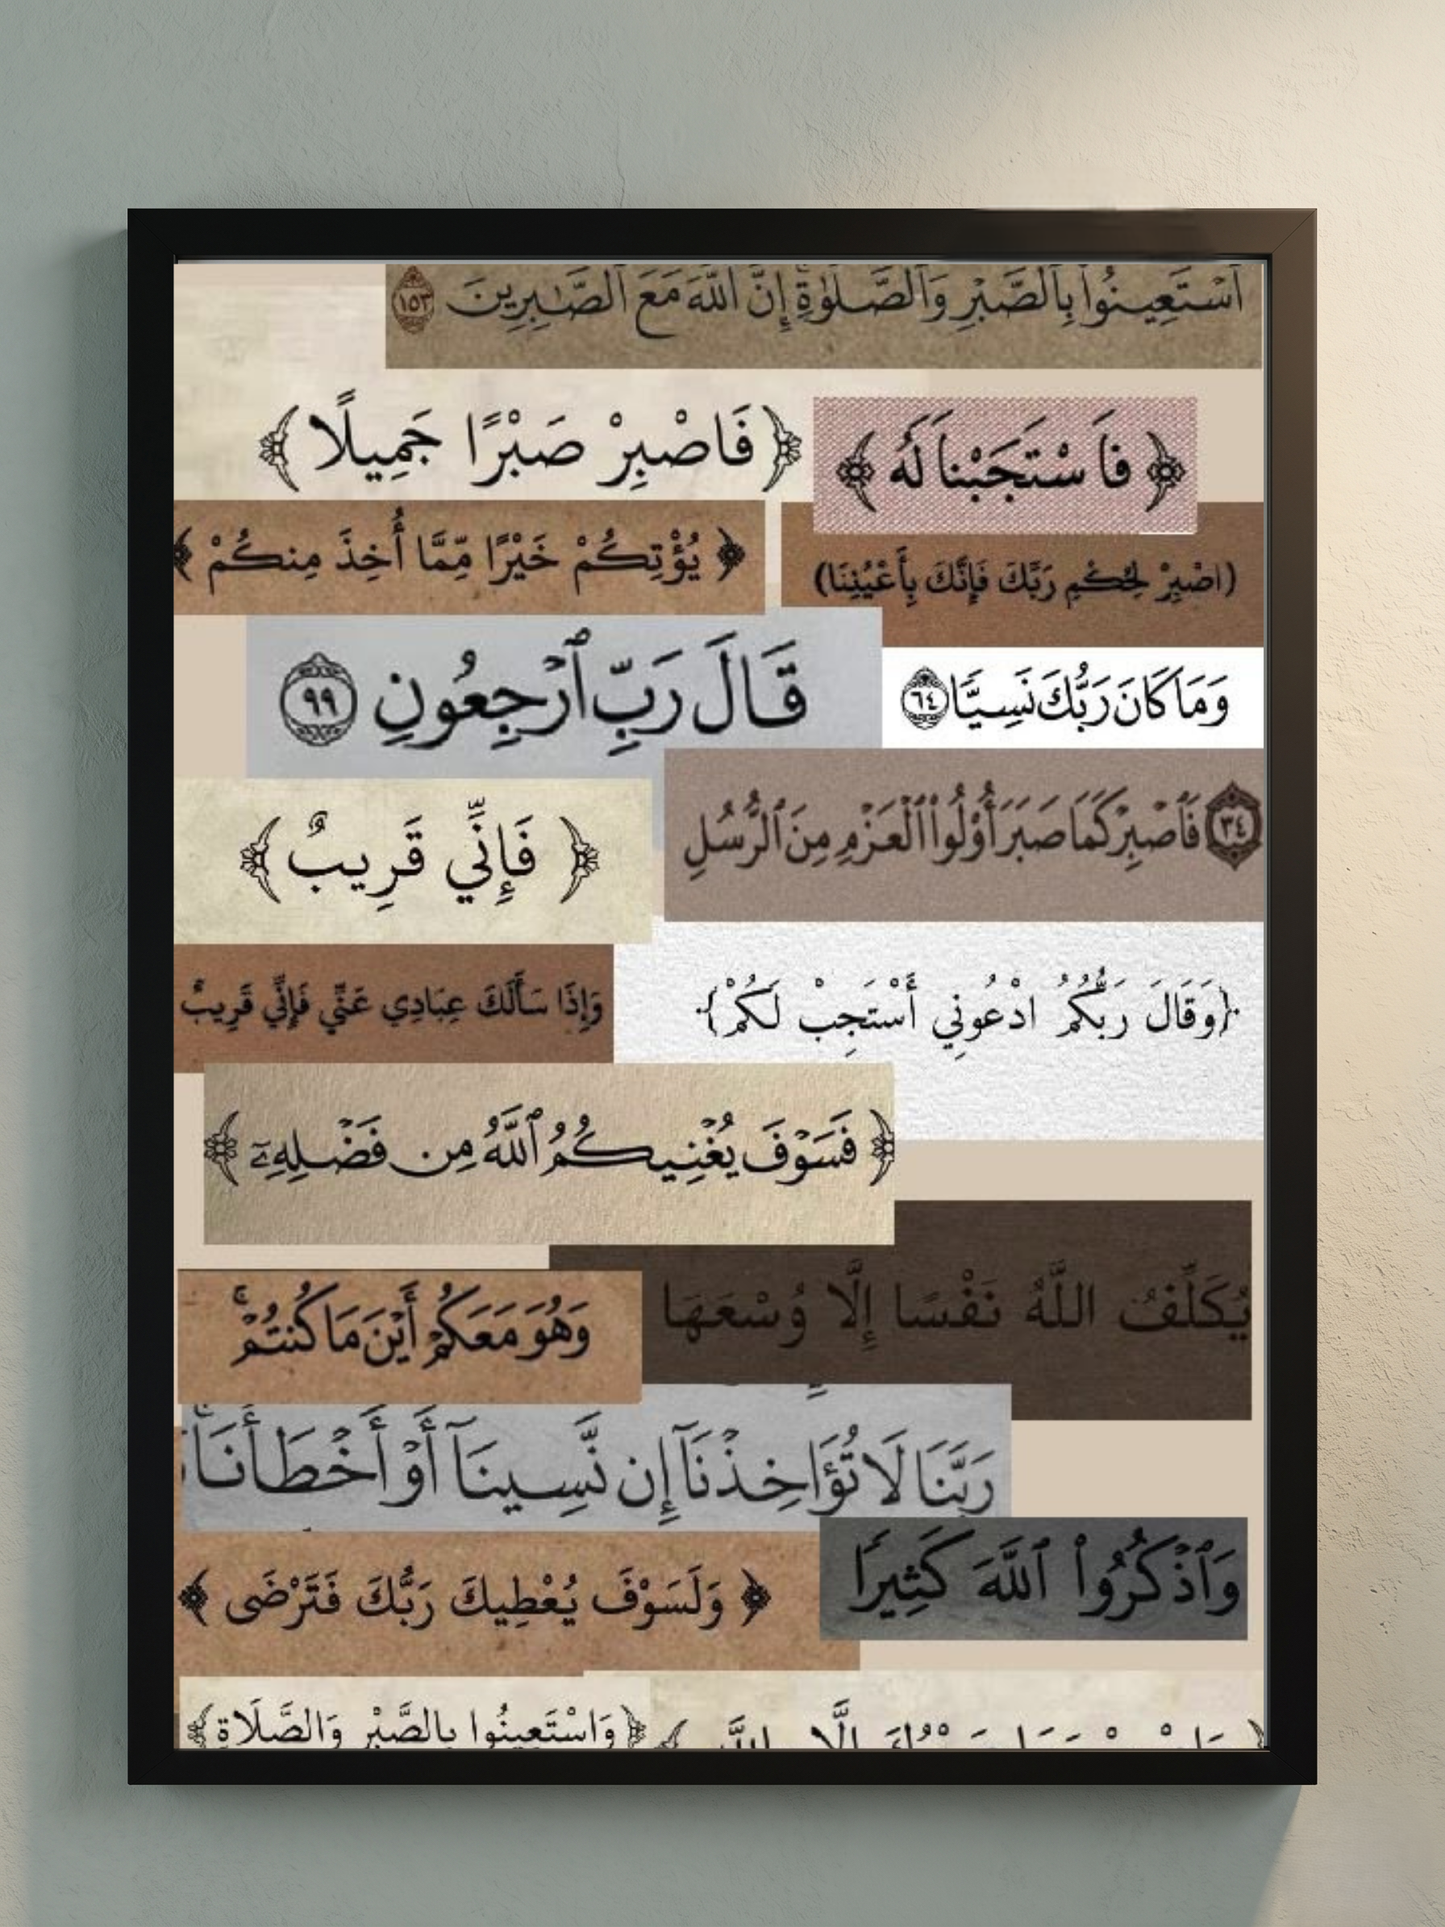 ٱسْتَعِينُوا۟ بِٱلصَّبْرِ وَٱلصَّلَوٰةِ إِنَّ ٱللَّهَ مَعَ ٱلصَّـٰبِرِينَ ١٥٣
﴿ فَاسْتَجَبْنَا لَهُ ﴾
﴿ فَاصْبِرْ صَبْرًا جَمِيلًا ﴾
﴿ يُؤْتِكُمْ خَيْرًا مِّمَّا أُخِذَ مِنكُمْ ﴾
(اصْبِرْ لِحُكْمِ رَبِّكَ فَإِنَّكَ بِأَعْيُنِنَا)
قَالَ رَبِّ ٱرْجِعُونِ ٩٩
وَمَا كَانَ رَبُّكَ نَسِيًّا ٦٤
٣٤ فَٱصْبِرْ كَمَا صَبَرَ أُو۟لُوا۟ ٱلْعَزْمِ مِنَ ٱلرُّسُلِ
﴿ فَإِنِّي قَرِيبٌ ﴾
{وَقَالَ رَبُّكُمُ ادْعُونِي أَسْتَجِبْ لَكُمْ}
وَإِذَا سَأَلَكَ عِبَادِي عَنِّي فَإِنِّي قَرِيبٌ
﴿ فَسَوْفَ يُغْنِيكُمُ ٱللَّهُ مِن فَضْلِهِۦٓ ﴾
يُكَلِّفُ اللَّهُ نَفْسًا إِلَّا وُسْعَهَا
وَهُوَ مَعَكُمْ أَيْنَ مَا كُنتُمْ ۚ
رَبَّنَا لَا تُؤَاخِذْنَآ إِن نَّسِينَآ أَوْ أَخْطَأْنَا ۚ
وَٱذْكُرُوا۟ ٱللَّهَ كَثِيرًا
﴿ وَلَسَوْفَ يُعْطِيكَ رَبُّكَ فَتَرْضَى ﴾
﴿وَاسْتَعِينُوا بِالصَّبْرِ وَالصَّلَاةِ﴾